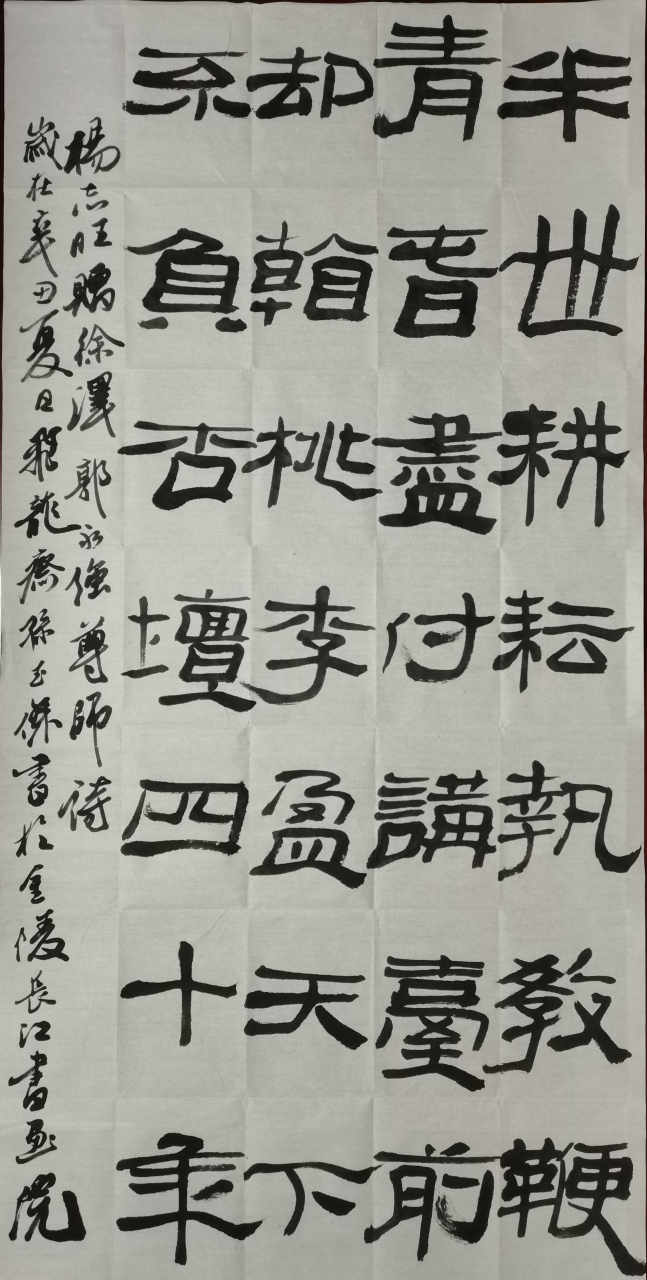 半世耕耘執教鞭
青春盡付講臺前
却看桃李盈天下
不負杏壇四十年
楊志旺贈徐澤 郭永強尊師詩
歲在辛丑夏日龍齋孫玉傑書於金陵長江書画院